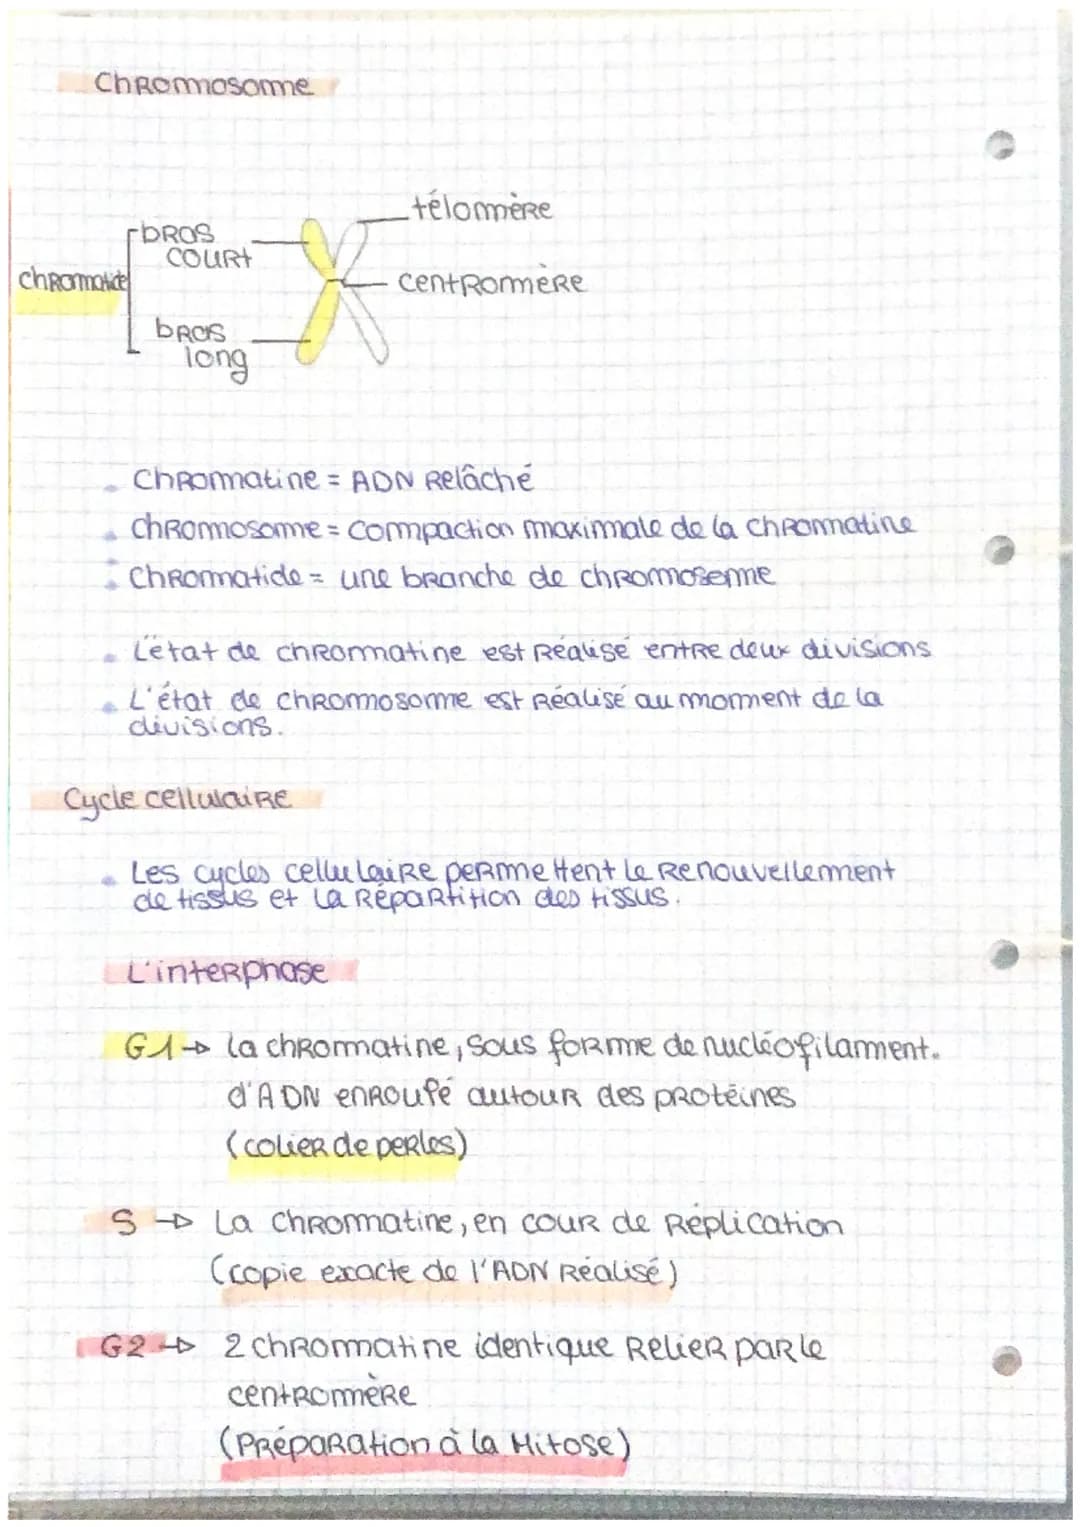 Chromosome
télomère
bras
court
chromatide
centromère
bras
long
Chromatine = ADN Relâché
Chromosome = compaction maximale de la chromatine
Chromatide = une branche de chromoseme
L'état de chromatine est Réalisé entre deux divisions
L'état de chromosome est Réalisé au moment de la
divisions.
Cycle cellulaire
Les cycles cellulaire permettent le Renouvellement
de tissus et la Répartition des tissus.
L'interphase
G1→ la chromatine, sous forme de nucléofilament.
d'ADN enroupé autour des protéines
(colier de perles)
S → La chromatine, en cour de Réplication
(copie exacte de l'ADN Réalisé)
G2→ 2 chromatine identique Relier par le
centromère
(Préparation à la Mitose)